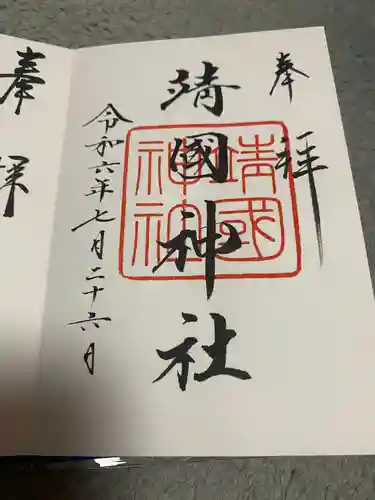 奉拝
靖國神社
靖國
神社
令和六年七月二十六日
奉
拝